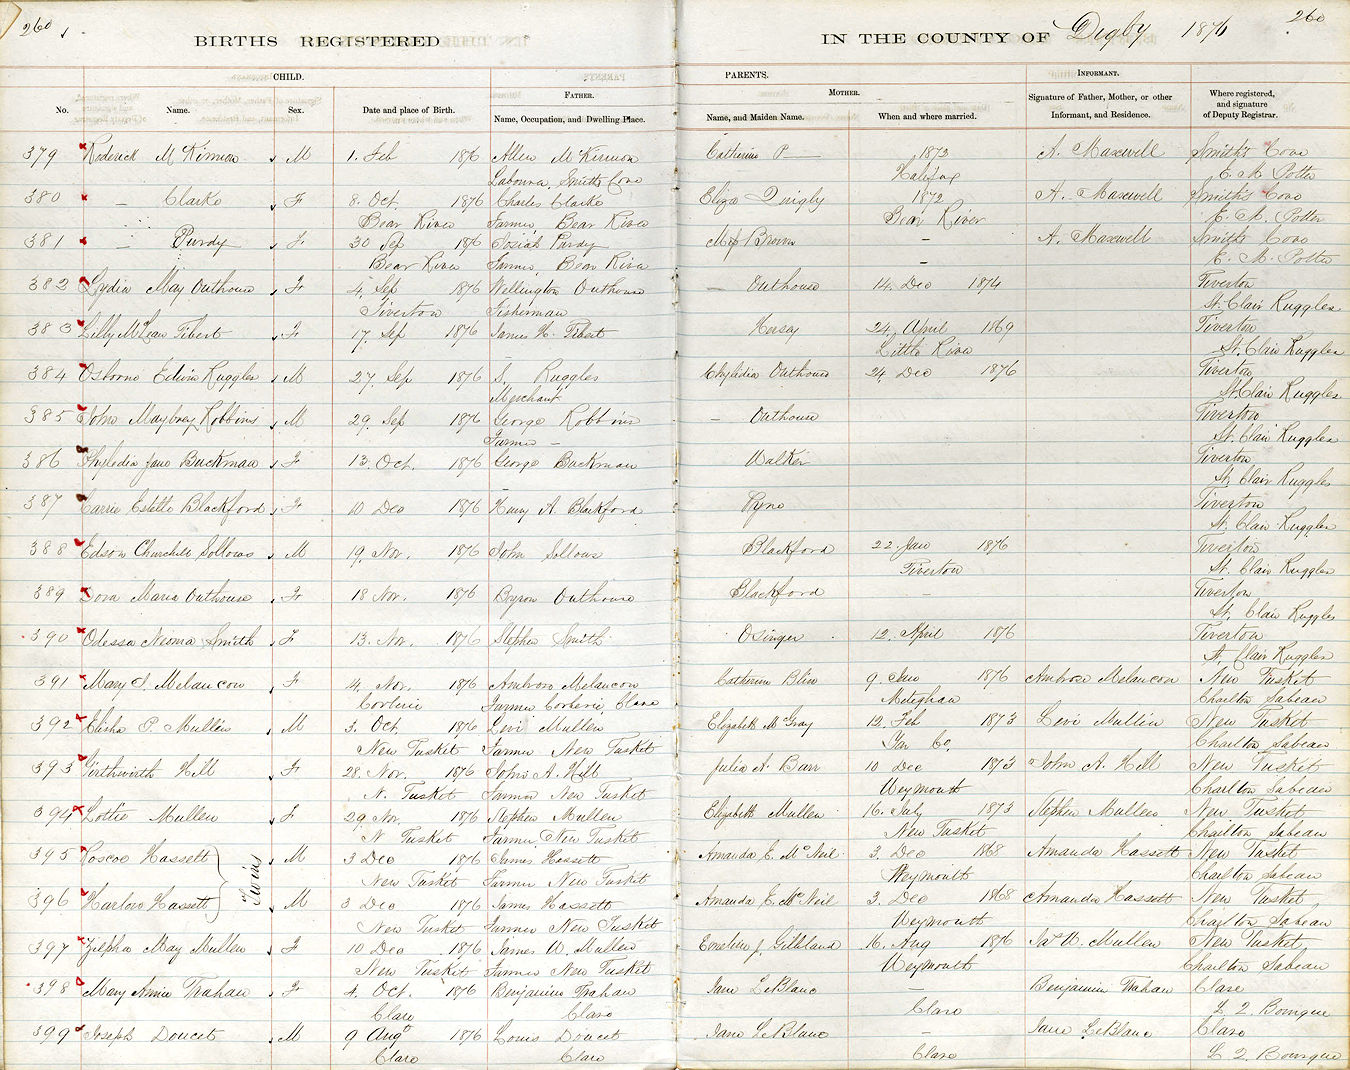 260
260
BIRTHS REGISTERED IN THE COUNTY OF Digby 1876
CHILD. PARENTS. INFORMANT.
FATHER. MOTHER.
No. Name. Sex. Date and place of Birth. Name, Occupation, and Dwelling Place. Name, and Maiden Name. When and where married. Signature of Father, Mother, or other Informant, and Residence. Where registered, and signature of Deputy Registrar.
379 Roderick McKinnon M 1. Feb 1876 Allen McKinnon Catherine P— 1873 A. Maxwell Smith's Cove
Labourer, Smiths Cove Halifax E. M. Potter
380 — Clarke F 8. Oct. 1876 Charles Clarke Eliza Quigly 1872 A. Maxwell Smith's Cove
Bear River Farmer, Bear River Bear River E. M. Potter
381 — Purdy F. 30 Sep 1876 Josiah Purdy Miss Brown — A. Maxwell Smiths Cove
Bear River Farmer, Bear River — E. M. Potter
382 Lydia May Outhouse F 4. Sep 1876 Wellington Outhouse — Outhouse 14. Dec 1874 Tiverton
Tiverton Fisherman St. Clair Ruggles
383 Lilly McLean Tibert F 17. Sep 1876 James H. Tibert Hersey 24. April 1869 Tiverton
Little River St. Clair Ruggles
384 Osborne Edwin Ruggles M 27. Sep 1876 S. Ruggles Phylidia Outhouse 24. Dec 1876 Tiverton
Merchant St. Clair Ruggles
385 John Maybrey Robbins M 29. Sep 1876 George Robbins — Outhouse Tiverton
Farmer — St. Clair Ruggles
386 Phyledia Jane Buckman F 13. Oct. 1876 George Buckman Walker Tiverton
— St. Clair Ruggles
387 Carrie Estelle Blackford F 10 Dec 1876 Henry A Blackford Pyne Tiverton
St. Clair Ruggles
388 Edson Churchill Sollows M 19. Nov. 1876 John Sollows Blackford 22. Jan 1876 Tiverton
Tiverton St. Clair Ruggles
389 Dora Maria Outhouse F 18 Nov. 1876 Byron Outhouse Blackford — Tiverton
St. Clair Ruggles
390 Odessa Neoma Smith F 13. Nov. 1876 Stephen Smith Osinger 12. April 1876 Tiverton
St. Clair Ruggles
391 Mary S. Melancon F 4. Nov. 1876 Ambrose Melancon Catherine Blin 9 Jan 1876 Ambrose Melancon New Tusket
Corberie Farmer Corberie, Clare Meteghan Charlton Sabean
392 Elisha P. Mullen M 3. Oct 1876 Levi Mullen Elizabeth McGray 12. Feb 1873 Levi Mullen New Tusket
New Tusket Farmer New Tusket Yar Co. Charlton Sabean
393 Hill F 28. Nov. 1876 John A. Hill Julia A. Barr 10 Dec 1873 John A. Hill New Tusket
N. Tusket Farmer New Tusket Weymouth Charlton Sabean
394 Lottie Mullen F 29 Nov. 1876 Stephen Mullen Elizabeth Mullen 16. July 1873 Stephen Mullen New Tusket
N Tusket Farmer New Tusket New Tusket Charlton Sabean
395 Roscoe Hassett M 3 Dec 1876 James Hassett Amanda E. McNeil 3. Dec 1868 Amanda Hassett New Tusket
Twins
New Tusket Farmer New Tusket Weymouth Charlton Sabean
396 Harlow Hassett M 3 Dec 1876 James Hassett Amanda E. McNeil 3. Dec 1868 Amanda Hassett New Tusket
New Tusket Farmer New Tusket Weymouth Charlton Sabean
397 Zilpha May Mullen F 10 Dec 1876 James W. Mullen Emeline J. Gilliland 16. Aug 1876 Jas W. Mullen New Tusket
New Tusket Farmer New Tusket Weymouth Charlton Sabean
398 Mary Annie Trahan F 4. Oct. 1876 Benjamin Trahan Jane LeBlanc — Benjamin Trahan Clare
Clare Clare Clare Bourque
399 Joseph Doucet M 9 Aug 1876 Louis Doucet Jane LeBlanc — Jane LeBlanc Clare
Clare Clare Clare Bourque